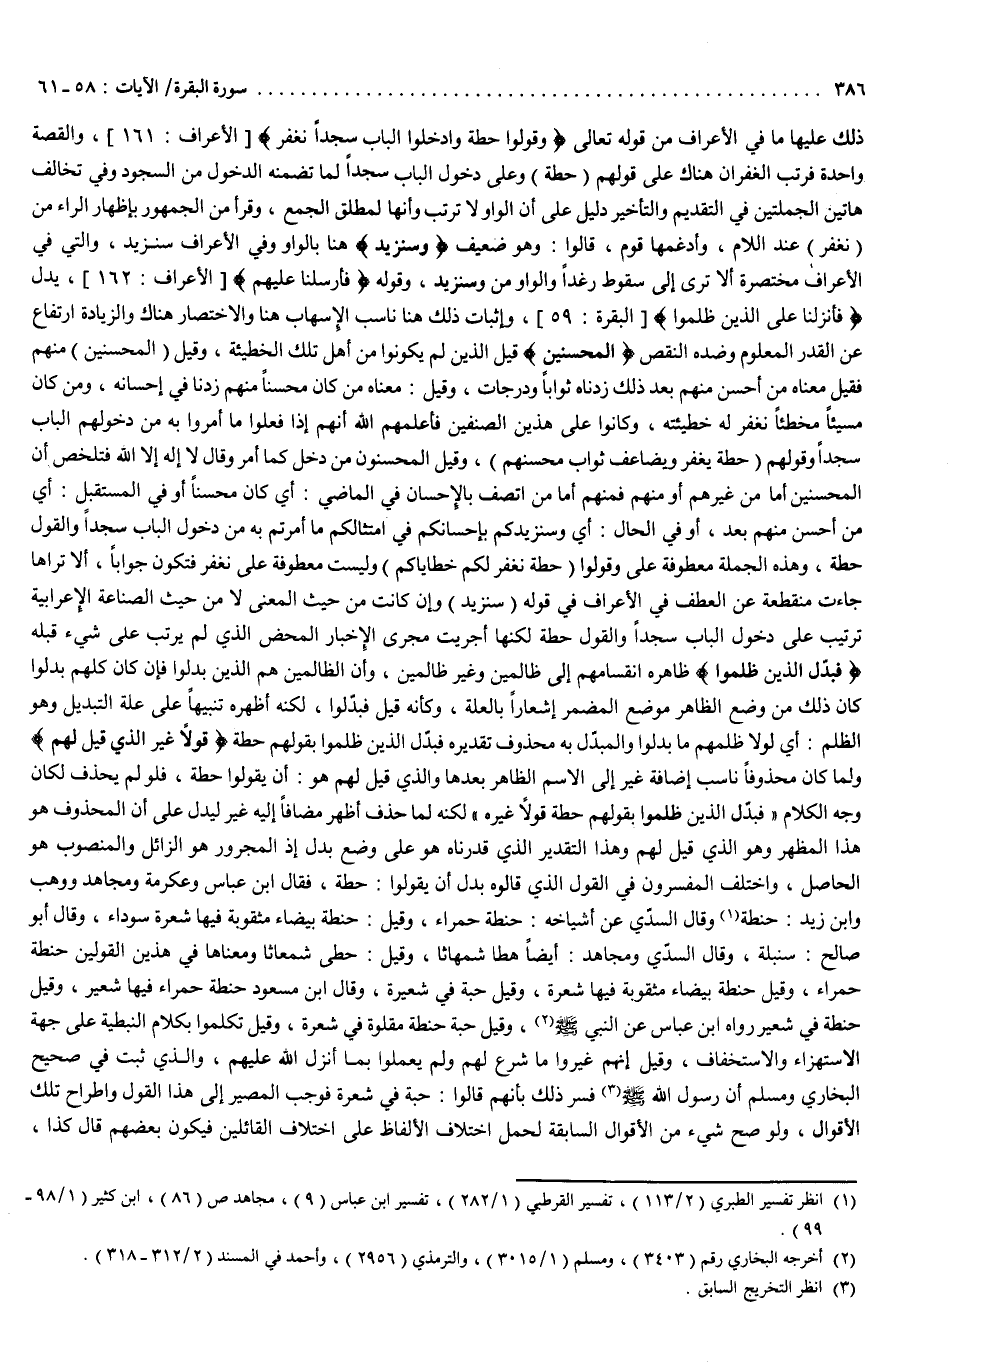 ٣٨٦ .................................................. سورة البقرة/ الآيات : ٥٨ ـ ٦١
ذلك عليها ما في الأعراف من قوله تعالى ﴿ وقولوا حطة وادخلوا الباب سجداً نغفر ﴾ [ الأعراف : ١٦١ ] ، والقصة
واحدة فرتب الغفران هناك على قولهم ( حطة ) وعلى دخول الباب سجداً لما تضمنه الدخول من السجود وفي تخالف
هاتين الجملتين في التقديم والتأخير دليل على أن الواو لا ترتب وأنها لمطلق الجمع ، وقرأ من الجمهور بإظهار الراء من
( نغفر ) عند اللام ، وأدغمها قوم ، قالوا : وهو ضعيف ﴿ وسنزيد ﴾ هنا بالواو وفي الأعراف سنـزيد ، والتي في
الأعراف مختصرة ألا ترى إلى سقوط رغداً والواو من وسنزيد ، وقوله ﴿ فأرسلنا عليهم ﴾ [ الأعراف : ١٦٢ ] ، يدل
﴿ فأنزلنا على الذين ظلموا ﴾ [ البقرة : ٥٩ ] ، وإثبات ذلك هنا ناسب الإسهاب هنا والاختصار هناك والزيادة ارتفاع
عن القدر المعلوم وضده النقص ﴿ المحسنين ﴾ قيل الذين لم يكونوا من أهل تلك الخطيئة ، وقيل ( المحسنين ) منهم
فقيل معناه من أحسن منهم بعد ذلك زدناه ثواباً ودرجات ، وقيل : معناه من كان محسناً منهم زدنا في إحسانه ، ومن كان
مسيئاً مخطئاً نغفر له خطيئته ، وكانوا على هذين الصنفين فأعلمهم الله أنهم إذا فعلوا ما أمروا به من دخولهم الباب
سجداً وقولهم ( حطة يغفر ويضاعف ثواب محسنهم ) ، وقيل المحسنون من دخل كما أمر وقال لا إله إلا الله فتلخص أن
المحسنين أما من غيرهم أو منهم فمنهم أما من اتصف بالإحسان في الماضي : أي كان محسناً أو في المستقبل : أي
من أحسن منهم بعد ، أو في الحال : أي وسنزيدكم بإحسانكم في امتثالكم ما أمرتم به من دخول الباب سجداً والقول
حطة ، وهذه الجملة معطوفة على وقولوا ( حطة نغفر لكم خطاياكم ) وليست معطوفة على نغفر فتكون جواباً ، ألا تراها
جاءت منقطعة عن العطف في الأعراف في قوله ( سنزيد ) وإن كانت من حيث المعنى لا من حيث الصناعة الإعرابية
ترتيب على دخول الباب سجداً والقول حطة لكنها أجريت مجرى الإخبار المحض الذي لم يرتب على شيء قبله
﴿ فبدّل الذين ظلموا ﴾ ظاهره انقسامهم إلى ظالمين وغير ظالمين ، وأن الظالمين هم الذين بدلوا فإن كان كلهم بدلوا
كان ذلك من وضع الظاهر موضع المضمر إشعاراً بالعلة ، وكأنه قيل فبدّلوا ، لكنه أظهره تنبيهاً على علة التبديل وهو
الظلم : أي لولا ظلمهم ما بدلوا والمبدّل به محذوف تقديره فبدّل الذين ظلموا بقولهم حطة ﴿ قولاً غير الذي قيل لهم ﴾
ولما كان محذوفاً ناسب إضافة غير إلى الاسم الظاهر بعدها والذي قيل لهم هو : أن يقولوا حطة ، فلو لم يحذف لكان
وجه الكلام « فبدّل الذين ظلموا بقولهم حطة قولاً غيره » لكنه لما حذف أظهر مضافاً إليه غير ليدل على أن المحذوف هو
هذا المظهر وهو الذي قيل لهم وهذا التقدير الذي قدرناه هو على وضع بدل إذ المجرور هو الزائل والمنصوب هو
الحاصل ، واختلف المفسرون في القول الذي قالوه بدل أن يقولوا : حطة ، فقال ابن عباس وعكرمة ومجاهد ووهب
وابن زيد : حنطة(١) وقال السدّي عن أشياخه : حنطة حمراء ، وقيل : حنطة بيضاء مثقوبة فيها شعرة سوداء ، وقال أبو
صالح : سنبلة ، وقال السدّي ومجاهد : أيضاً هطا شمهاثا ، وقيل : حطى شمعاثا ومعناها في هذين القولين حنطة
حمراء ، وقيل حنطة بيضاء مثقوبة فيها شعرة ، وقيل حبة في شعيرة ، وقال ابن مسعود حنطة حمراء فيها شعير ، وقيل
حنطة في شعير رواه ابن عباس عن النبي ﷺ(٢) ، وقيل حبة حنطة مقلوة في شعرة ، وقيل تكلموا بكلام النبطية على جهة
الاستهزاء والاستخفاف ، وقيل إنهم غيروا ما شرع لهم ولم يعملوا بمـا أنزل الله عليهم ، والـذي ثبت في صحيح
البخاري ومسلم أن رسول الله ﷺ(٣) فسر ذلك بأنهم قالوا : حبة في شعرة فوجب المصير إلى هذا القول واطراح تلك
الأقوال ، ولو صح شيء من الأقوال السابقة لحمل اختلاف الألفاظ على اختلاف القائلين فيكون بعضهم قال كذا ،
(١) انظر تفسير الطبري ( ٢/ ١١٣ ) ، تفسير القرطبي ( ١/ ٢٨٢ ) ، تفسير ابن عباس ( ٩ ) ، مجاهد ص ( ٨٦ ) ، ابن كثير ( ١/ ٩٨ ـ
٩٩ ) .
(٢) أخرجه البخاري رقم ( ٣٤٠٣ ) ، ومسلم ( ١/ ٣٠١٥ ) ، والترمذي ( ٢٩٥٦ ) ، وأحمد في المسند ( ٢/ ٣١٢ ـ ٣١٨ ) .
(٣) انظر التخريج السابق .